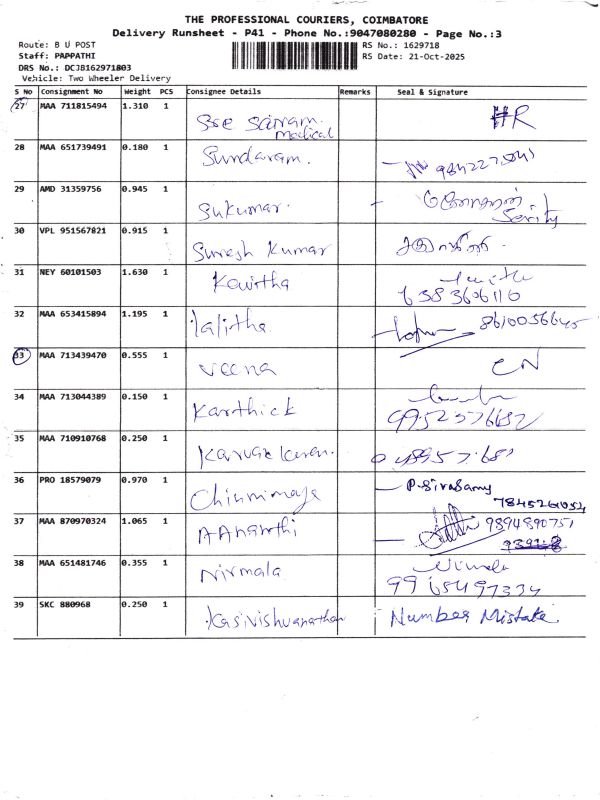 THE PROFESSIONAL COURIERS, COIMBATORE
Delivery Runsheet - P41 - Phone No.:9047080280 - Page No.:3
Route: B U POST
RS No.: 1629718
Staff: PAPPATHI
RS Date: 21-Oct-2025
DRS No.: DCJ8162971803
Vehicle: Two Wheeler Delivery
S No Consignment No Weight PCS Consignee Details Remarks Seal & Signature
27 MAA 711815494 1.310 1 Sree Sairam HR
medical
28 MAA 651739491 0.180 1 Sundaram.
29 AMD 31359756 0.945 1 Sukumar.
30 VPL 951567821 0.915 1 Suresh Kumar
31 NEY 60101503 1.630 1 Kavitha
6383606110
32 MAA 653415894 1.195 1 lalitha
33 MAA 713439470 0.555 1 veena CN
34 MAA 713044389 0.150 1 Karthick
35 MAA 710910768 0.250 1
36 PRO 18579079 0.970 1 P.Sivasamy
37 MAA 870970324 1.065 1 9894890751
38 MAA 651481746 0.355 1 Nirmala
9965497334
39 SKC 880968 0.250 1 Kasivishwanathan Number Mistake.